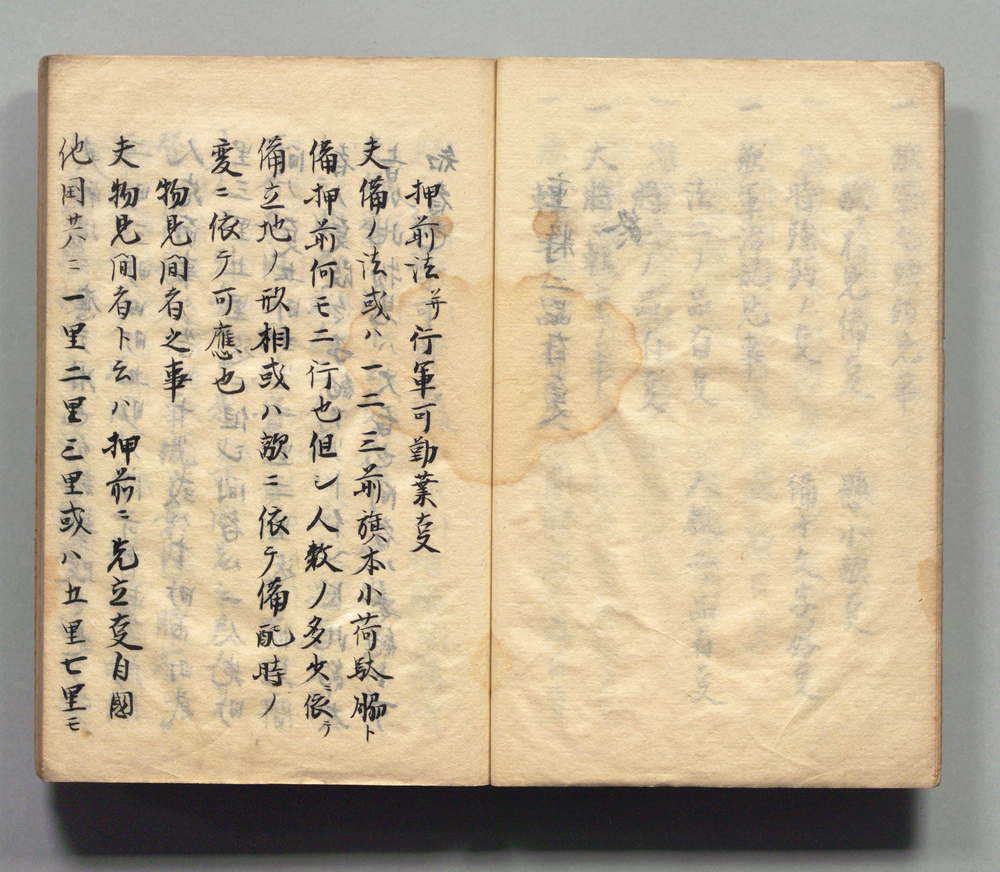 押前法并行軍可勤葉叓
夫備ノ法或ハ一二三前旗本小荷駄脇ト
備押前何モ二行也但シ人数ノ多少ニ依テ
備立地ノ形相或ハ敵ニ依テ備配時ノ
変ニ依テ可應也
物見間者之事
夫物見間者ト云ハ押前ニ先立叓自國
他国共ニ一里二里三里或ハ五里七里モ